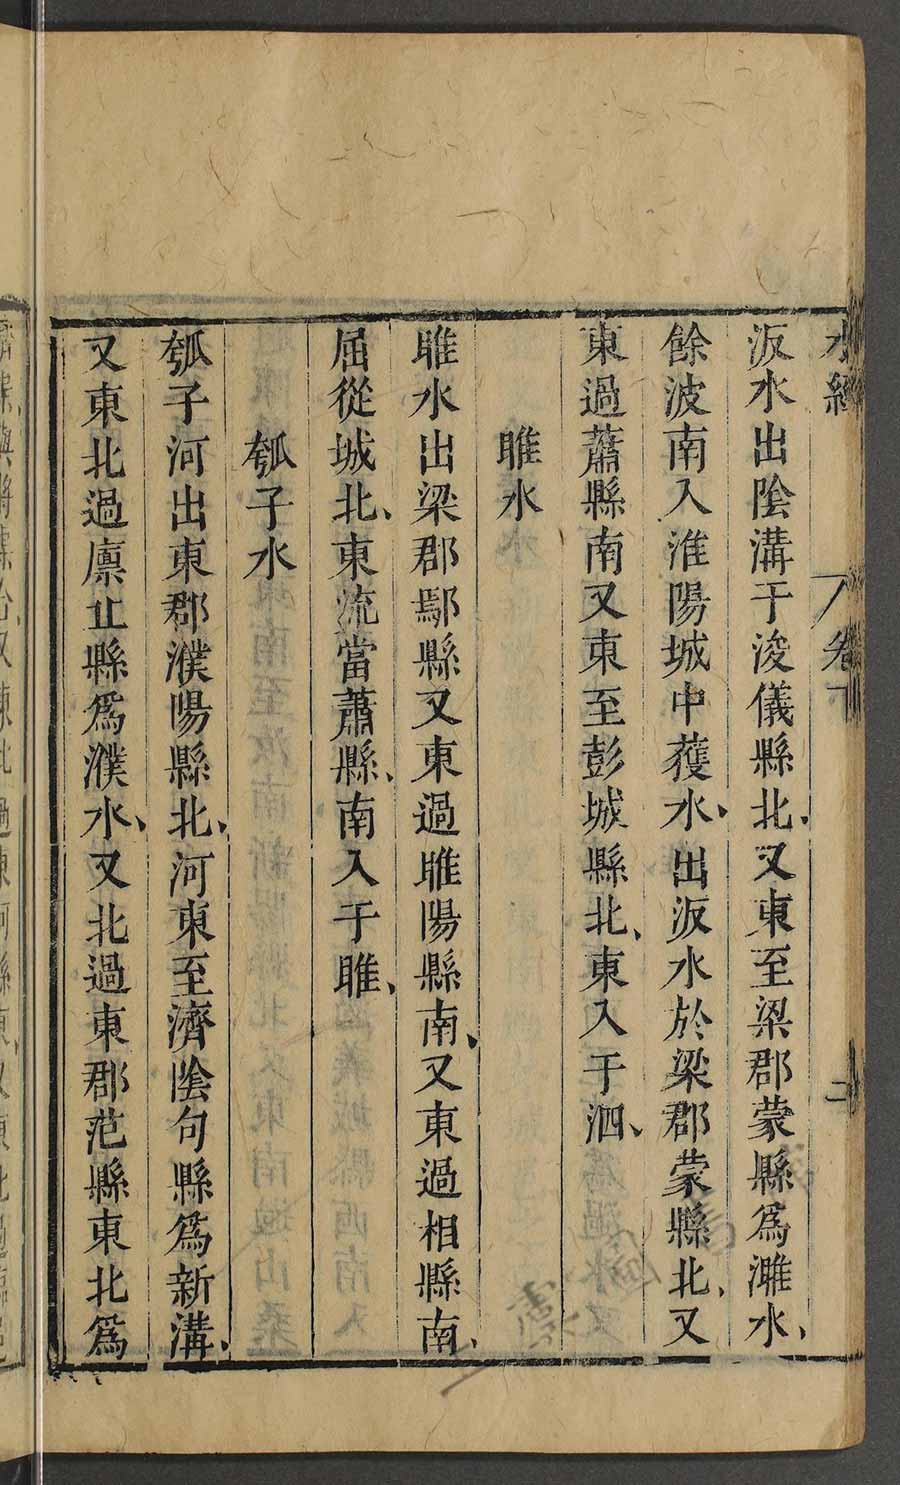 水經 卷下 二
汳水出陰溝于浚儀縣北、又東至梁郡蒙縣爲濉水、
餘波南入淮陽城中獲水、出汳水於梁郡蒙縣北、又
東過蕭縣南又東至彭城縣北、東入于泗、
睢水
睢水出梁郡鄢縣又東過睢陽縣南、又東過相縣南、
屈從城北、東流當蕭縣、南入于睢、
瓠子水
瓠子河出東郡濮陽縣北、河東至濟陰句縣爲新溝、
又東北過廪丘縣爲濮水、又北過東郡范縣東北爲